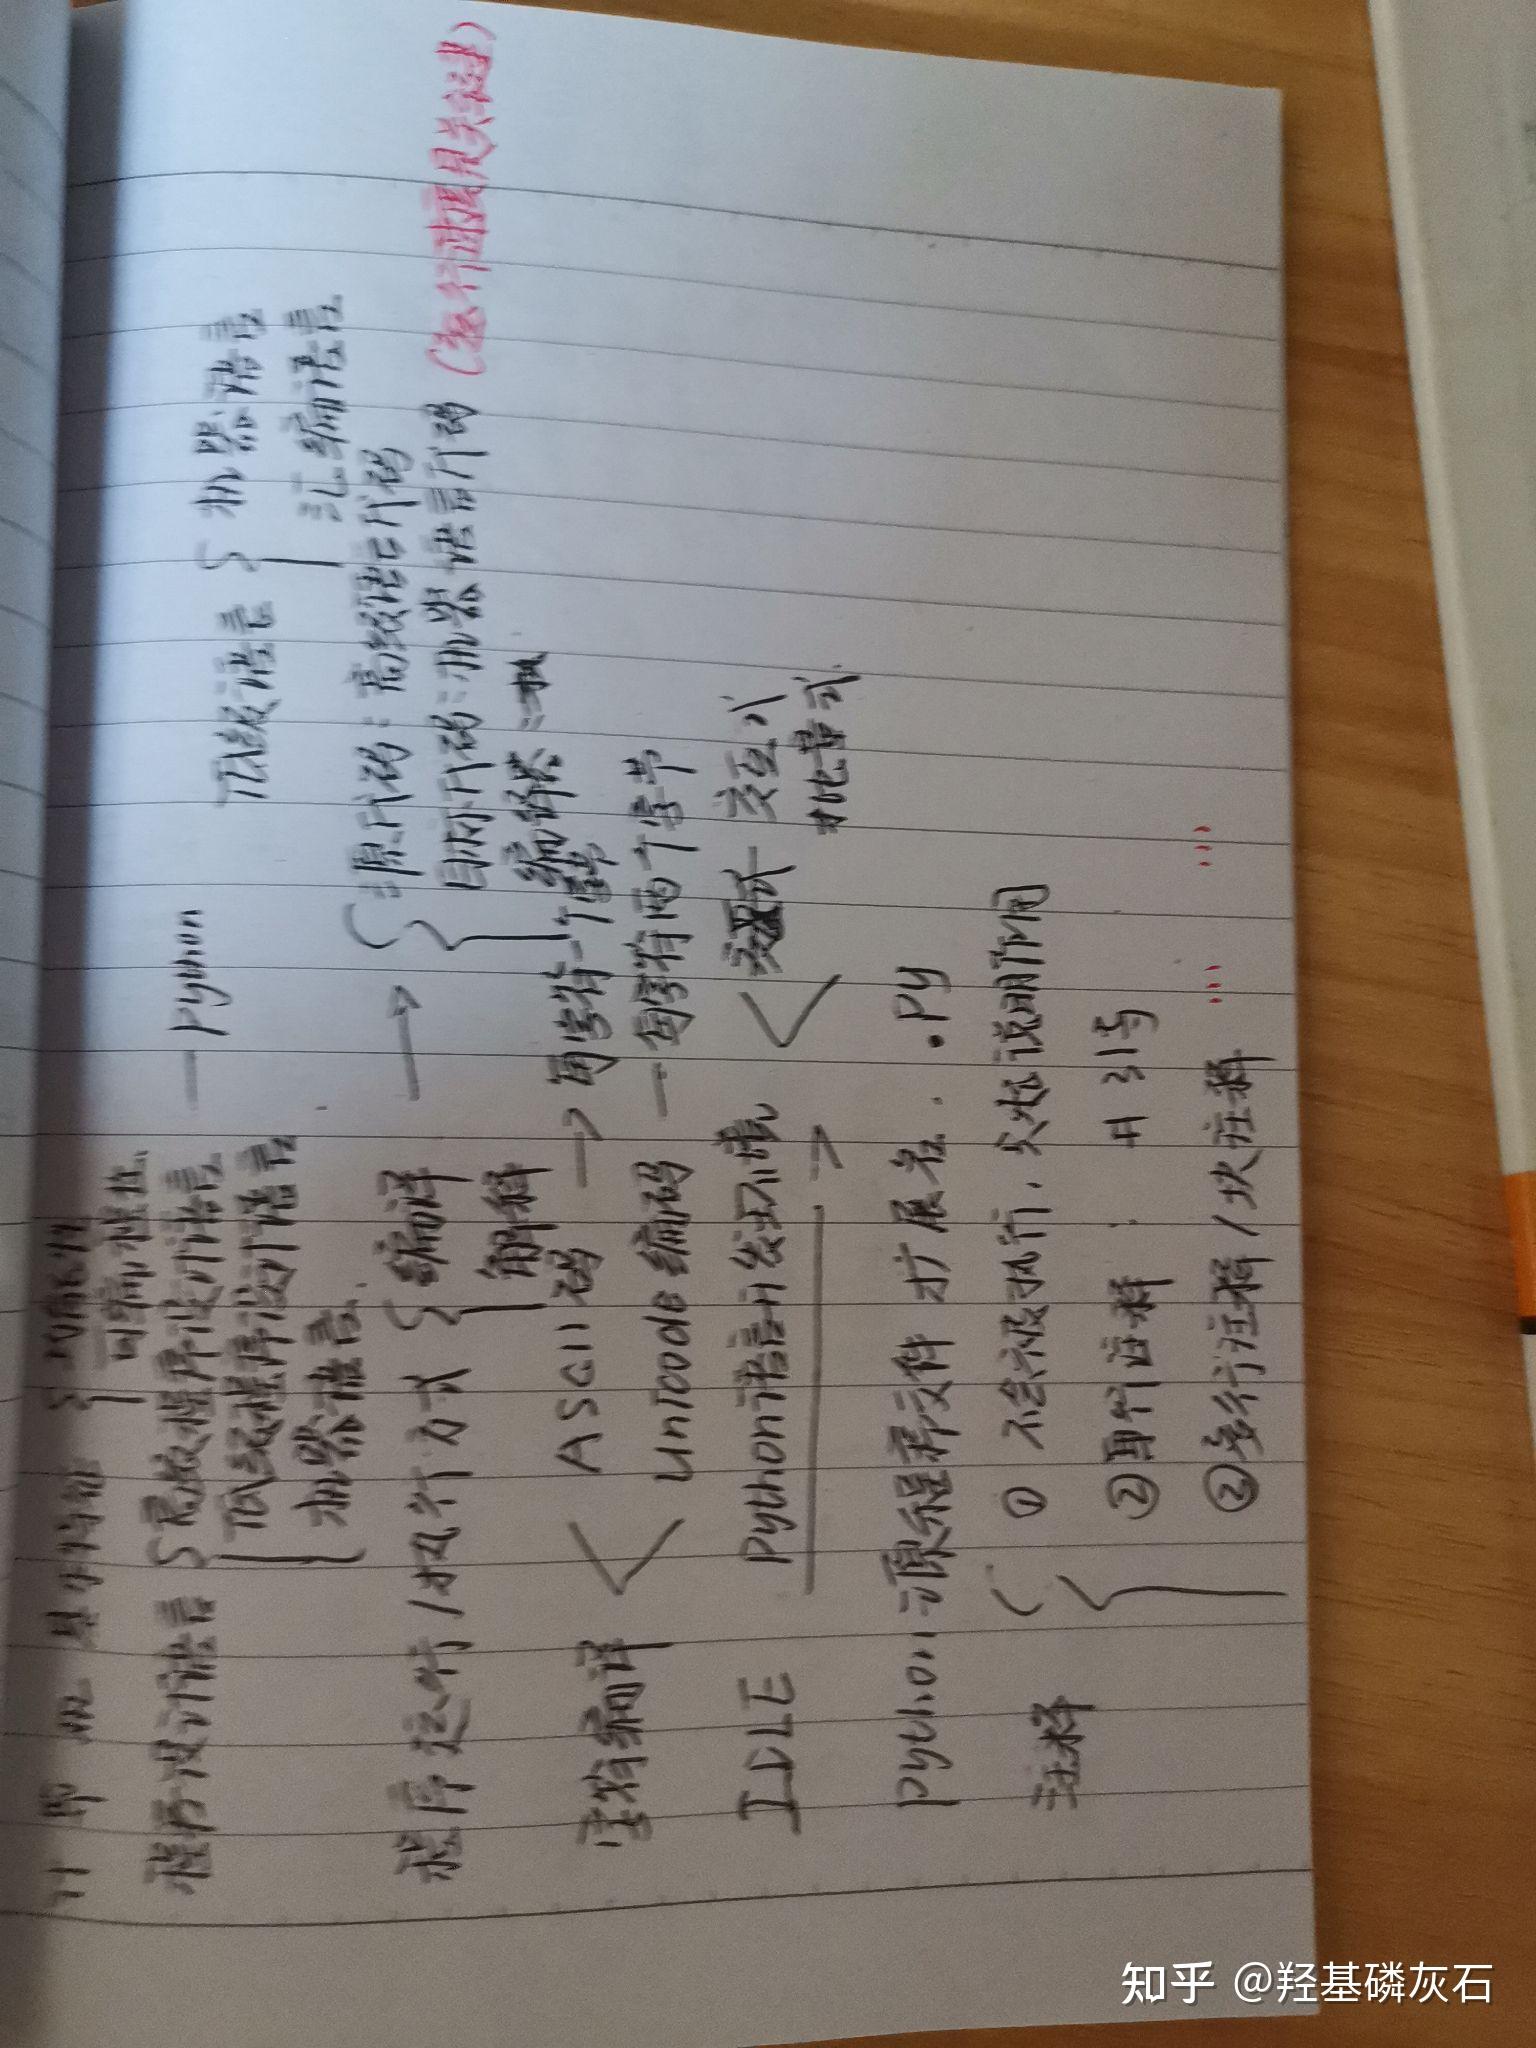 计算机 基本特性 { 功能性
可编程性.
程序设计语言 { 高级程序设计语言 — Python
低级程序设计语言 低级语言 { 机器语言
机器语言. 汇编语言
程序运行/执行方式 { 编译 → { 源代码:高级语言代码
解释 目标代码:机器语言代码 (运行速度是关键)
编译类:
字符编译 < ASCII码 → 每字符一个字节
Unicode编码 — 每字符两个字节
IDLE Python语言开发环境 < 交互式
批量式
Python源程序文件扩展名. .Py
注释 { ① 不会被执行,
② 单行注释: #
② 多行注释/块注释 ''' '''
知乎 @羟基磷灰石